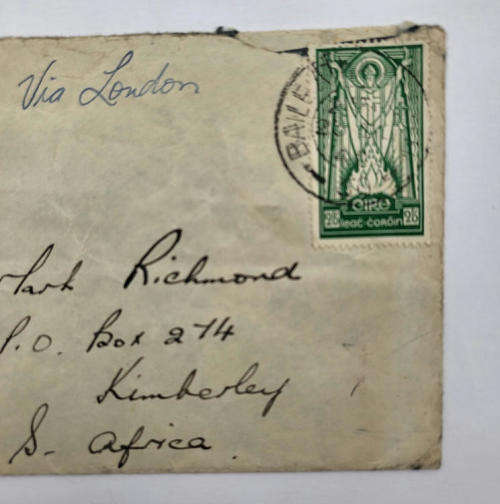 Via London
BAILE
EIRE
2/6 leat-ċoróin 2/6
Richmond
P.O. Box 274
Kimberley
S. Africa